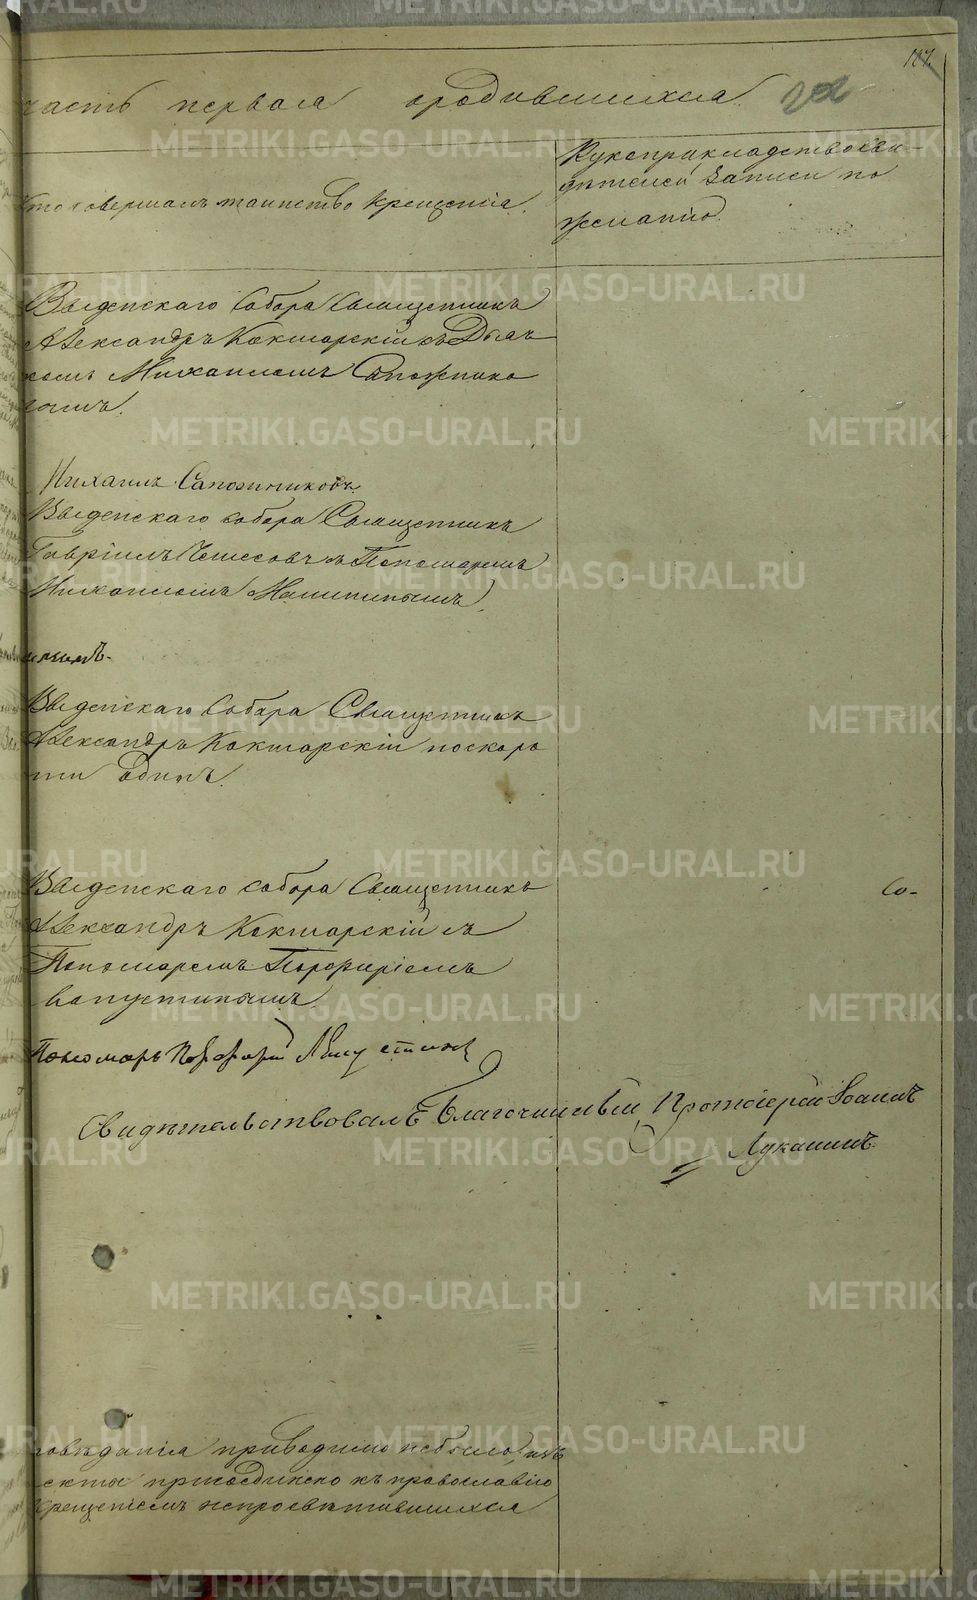 часть первая о родившихся
Кто совершалъ таинство крещенія.
Рукоприкладство сви-
дѣтелей записи по
желанію.
Введенскаго Собора Священникъ
Александръ Кокшарскій съ Дьяч
комъ Михаиломъ Сапожнико
вымъ.
Михаилъ Сапожниковъ.
Введенскаго собора Священникъ
Гавріилъ съ Пономаремъ
Михаиломъ
Введенскаго Собора Священникъ
Александръ Кокшарскій по скоро
сти одинъ.
Введенскаго собора Священникъ
Александръ Кокшарскій съ
Пономаремъ Порфиріемъ
Капустинымъ
Пономарь Порфирій Капустинъ
Со-
Свидѣтельствовалъ Благочинный Протоіерей Іоаннъ
Лукашинъ.
повѣданія приводимо не было, изъ
секты присоединено къ православію
крещеніемъ непросвѣтившихся
METRIKI.GASO-URAL.RU